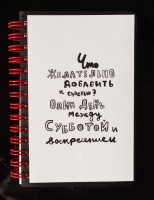 Что
ЖЕЛАТЕЛЬНО
ДОБАВИТЬ
К СЧАСТЬЮ?
ОДИН ДЕНЬ
МЕЖДУ
СУББОТОЙ и
воскресеньем